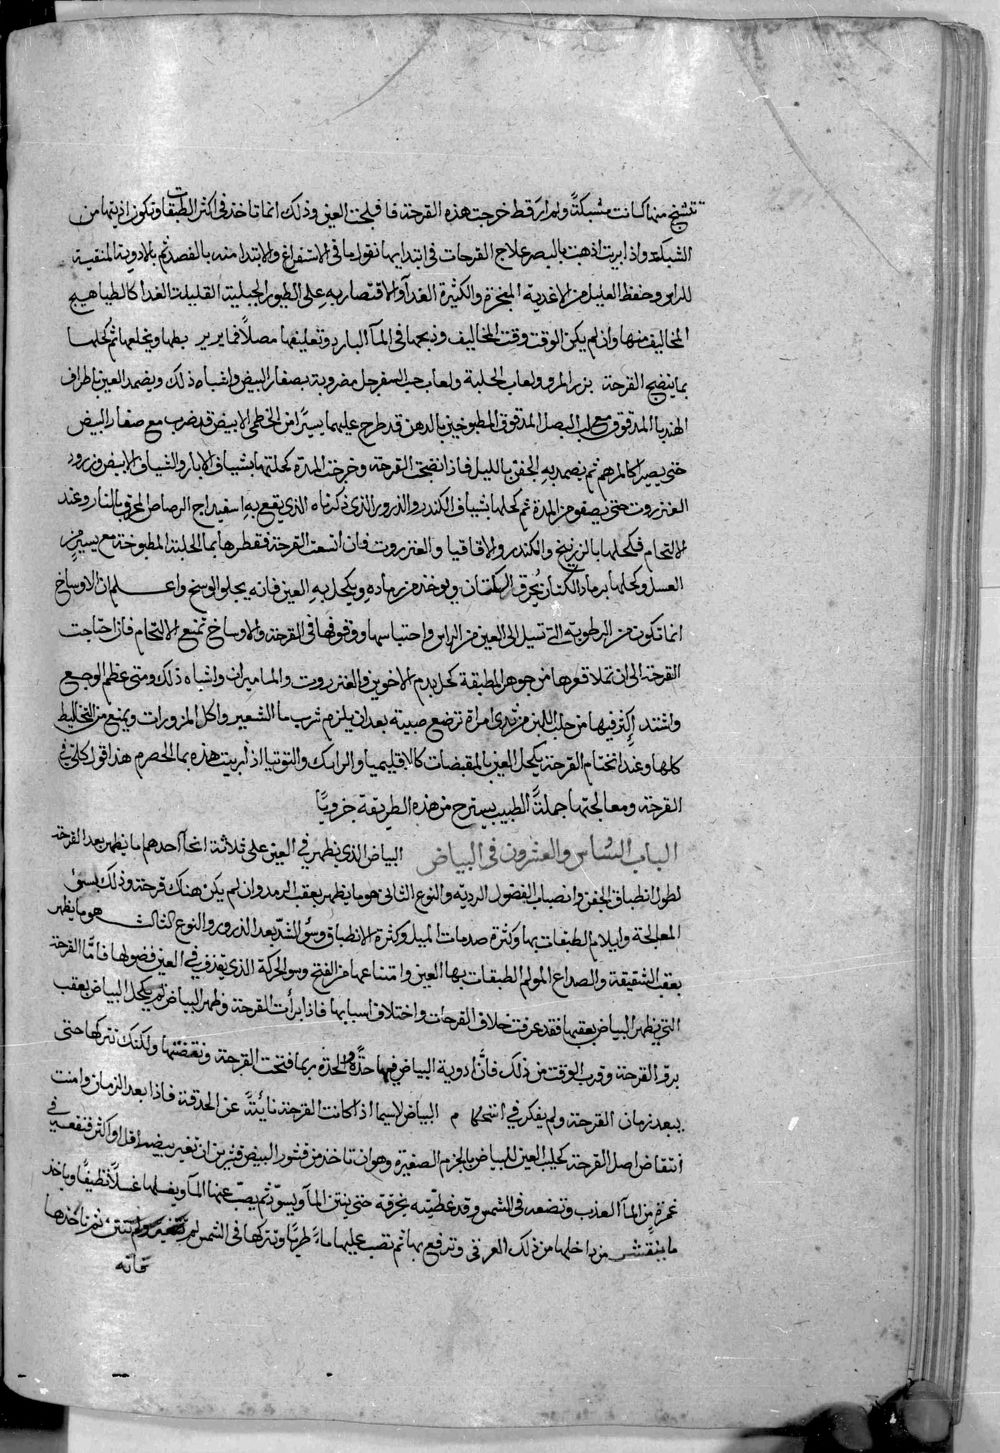 تنتسج منها كانت مشبكةً ولم ار قط خرجت هذه القرحة فافلحت العين وذلك انما تاخذ في اكثر الطبقات وتكون اذيتها من
الشبكة واذا بريت اذهبت بالبصر علاج القرحات في ابتدايها نقول ما في الاستفراغ والابتدا منه بالفصد ثم بالادوية المنقية
للراس وحفظ العليل من الاغدية المبخرة والكثيرة الغدآ والاقتصار به على الطيور الجبلية القليلت الغدا كالطياهيج
المخاليف منها وان لم يكن الوقت وقت المخاليف وذبحها في المآ البارد وتعليقها مصلاً فما يريد بطها ويخلعها ثم كحلها
بما ينضج القرحة بزر المرو ولعاب الحلبة ولعاب حب السفرجل مضروبة بصفار البيض واشباه ذلك ويضمد العين باطراف
الهندبا المدقوق مع لب البصل المدقوق المطبوخين بالدهن قد طرح عليهما يسيرًا من الخطمي الابيض قد ضرب مع صفار البيض
حتى يصيرا كالمرهم ثم يضمد به الجفن بالليل فاذا نضجت القرحة وخرجت المدة كحلتها بشياف الابار والشياف الابيض وذرور
العنزروت حتى يصفو من المدة ثم كحلها بشياف الكندر والذرور الذي ذكرناه الذي يقع به اسفيداج الرصاص المحرق بالنار وعند
الالتحام فكحلها بالزرنيخ والكندر والاقاقيا والعنزروت فان اتسعت القرحة فقطرها بما الحلبة المطبوخة مع يسير من
العسل وكحلها برماد الكتان يُحرق الكتان ويوخذ من رماده ويكحل به العين فانه يجلو الوسخ واعلم ان الاوساخ
انما تكون من الرطوبة التي تسيل الى العين من الراس واحتباسها ووقوفها في القرحة والاوساخ تمنع الالتحام فاذا احتاجت
القرحة الى ان تملا قعرها من جوهر الطبقة كحل بدم الاخوين والعنزروت والماميران واشباه ذلك ومتى عظم الوجع
واشتد اكثر فيها من حلب اللبن من ثدي امراة ترضع صبية بعد ان يلزم شرب ما الشعير واكل المزورات ويمنع من التخليط
كلها وعند انختام القرحة يكحل العين بالمقبضات كالاقليميا والرامك والتوتيا اذا ربيت هذه بما الحصرم هذا قول كلي في
القرحة ومعالجتها جملتًا الطبيب يسترح من هذه الطريقة جزويًا
الباب السادس والعشرون في البياض البياض الذي يظهر في العين على ثلاثة انحآ احدهم ما يظهر بعد القرحة
لطول انطباق الجفن وانصباب الفضول الردية والنوع الثاني هو ما يظهر بعقب الرمد وان لم يكن هناك قرحة وذلك لسوء
المعالجة وايلام الطبقات بها وكثرة صدمات الميل وكثرة الانطباق وسوء الشد بعد الذرور والنوع الثالث هو ما يظهر
بعقب الشقيقة والصداع المولم الطبقات بها العين وامتناعها من الفتح وسو الحركة الذي يقذف في العين فضولها فامّا القرحة
التي يظهر البياض بعقبها فقد عرفت خلاف القرحات واختلاف اسبابها فاذا برأت القرحة وظهر البياض لم يكحل البياض بعقب
برو القرحة وقرب الوقت من ذلك فانّ ادوية البياض فيها حدّة والحدة بما فتحت القرحة ونقضتها ولكنك تتركها حتى
يبعد زمان القرحة ولم يفكر في استحكام البياض لاسيما اذا كانت القرحة نايئةً عن الحدقة فاذا بعد الزمان وامنت
انتقاض اصل القرحة كحلت العين للبياض بالجزم الصغيرة وهو ان تاخذ من قشور البيض قشرتين ان تغير بيضه اقل او اكثر فتنقعه في
غمرة من المآ العذب وتضعه في الشمس وقد غطّيته بخرقة حتى ينتن المآ ويسودّ ثم يصب عنها المآ ويغسلها غسلًا نظيفًا وياخذ
ما يتقشر من داخلها من ذلك العرقى وترفع بها ثم تصب عليها ماءً طريًا وتتركها في الشمس لم تتغير ولم تنتن ثم تاخذها